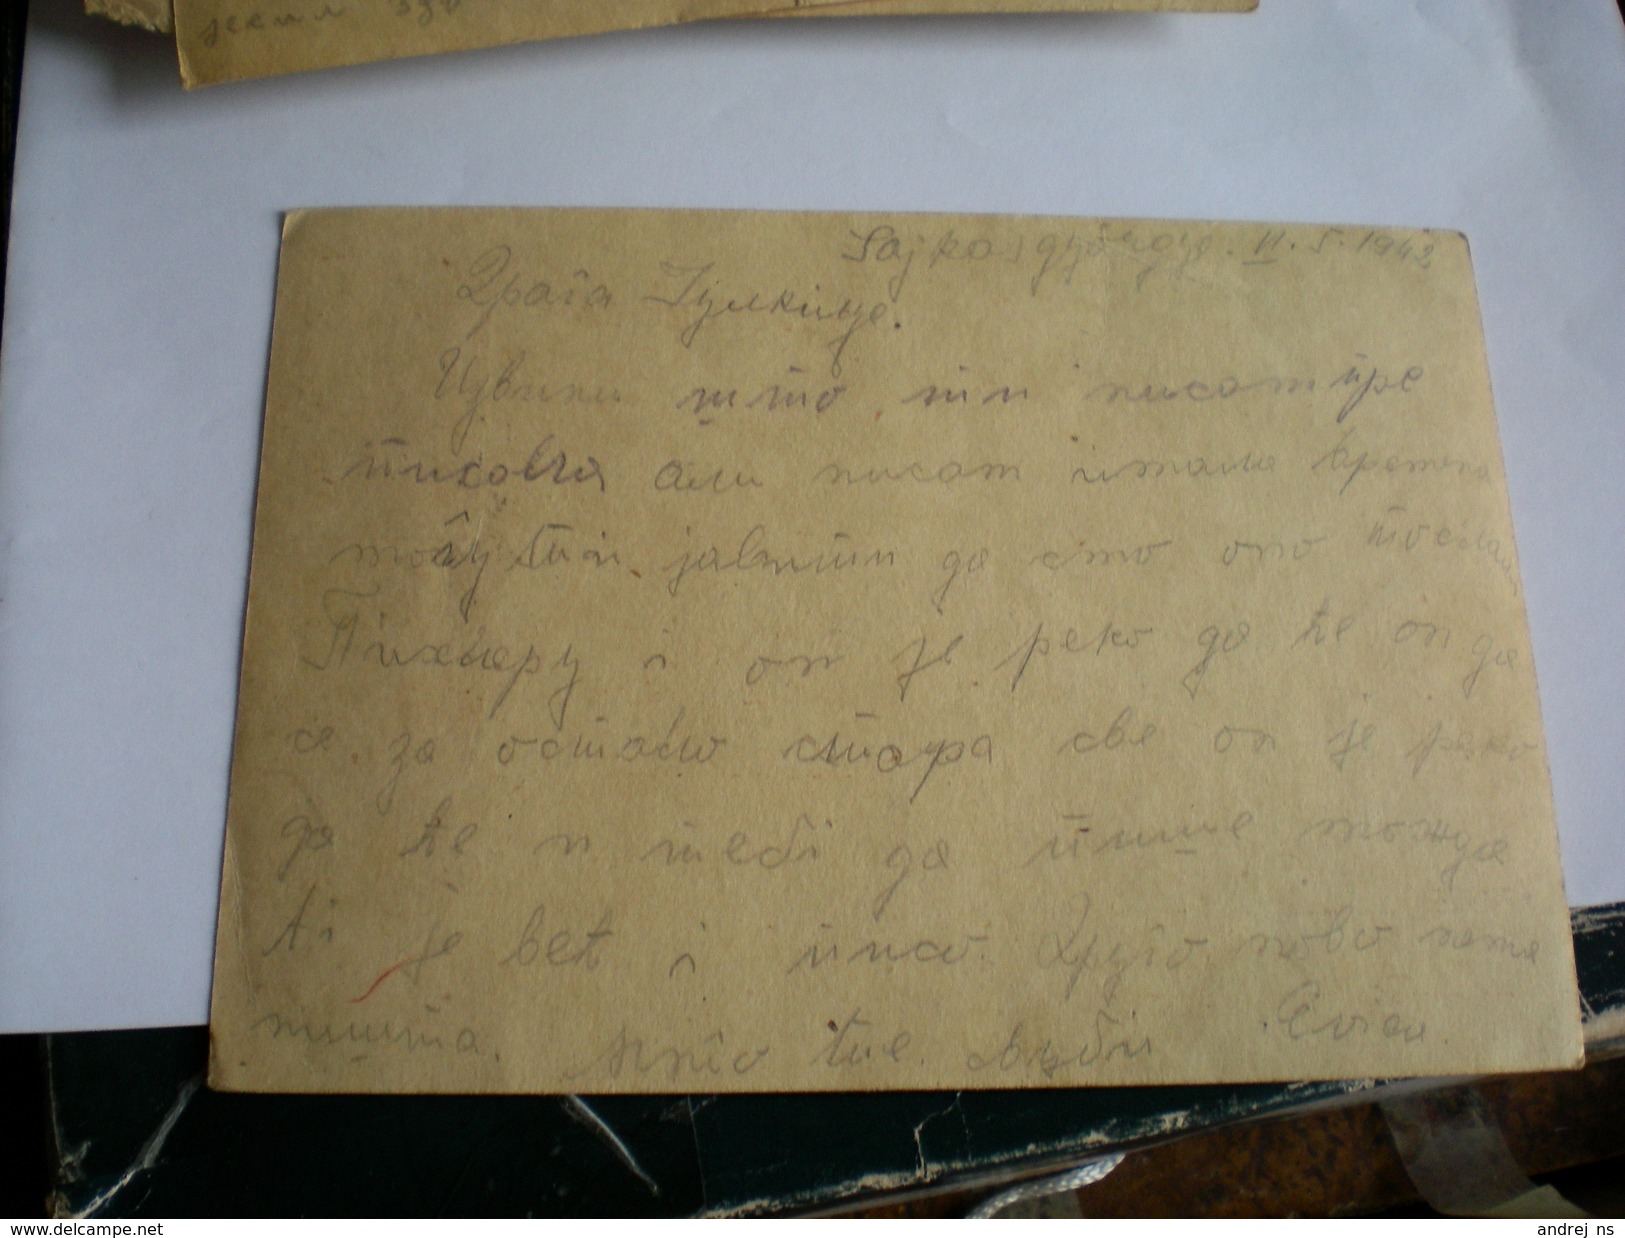 Sajkásgyörgye. II. 5. 1942
Драга Јулкице.
Извини што ти нисам пре
писала али нисам имала времена
могу ти јавити да смо оно послали
и он је реко да ће он да
се за остало стара све он је реко
да ће и теби да пише можда
ti је већ i писо. Друго ново нема
ништа. Много те љуби
www.delcampe.net
andrej_ns